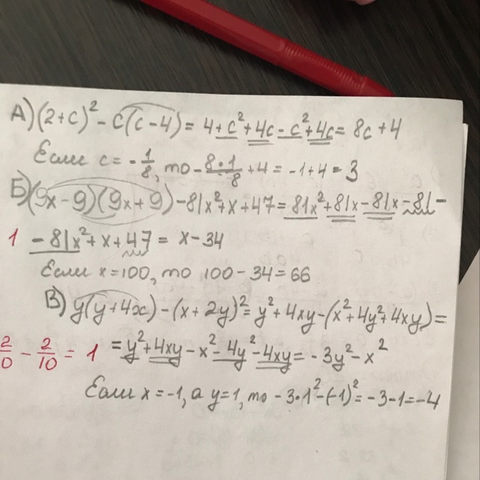 А) (2+c)² - c(c-4) = 4+c²+4c-c²+4c = 8c+4
Если c = -1/8, то -8·1/8+4 = -1+4 = 3
Б) (9x-9)(9x+9)-81x²+x+47 = 81x²+81x-81x-81-
1 -81x²+x+47 = x-34
Если x=100, то 100-34=66
В) y(y+4x)-(x+2y)² = y²+4xy-(x²+4y²+4xy) =
2/0 - 2/10 = 1 = y²+4xy-x²-4y²-4xy = -3y²-x²
Если x=-1, а y=1, то -3·1²-(-1)² = -3-1=-4